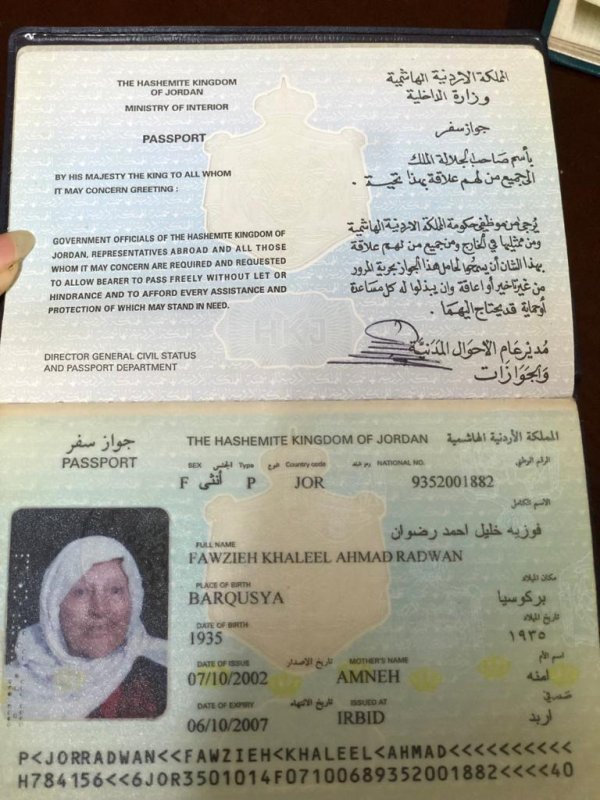 THE HASHEMITE KINGDOM
OF JORDAN
MINISTRY OF INTERIOR
PASSPORT
BY HIS MAJESTY THE KING TO ALL WHOM
IT MAY CONCERN GREETING :
GOVERNMENT OFFICIALS OF THE HASHEMITE KINGDOM OF
JORDAN, REPRESENTATIVES ABROAD AND ALL THOSE
WHOM IT MAY CONCERN ARE REQUIRED AND REQUESTED
TO ALLOW BEARER TO PASS FREELY WITHOUT LET OR
HINDRANCE AND TO AFFORD EVERY ASSISTANCE AND
PROTECTION OF WHICH MAY STAND IN NEED.
DIRECTOR GENERAL CIVIL STATUS
AND PASSPORT DEPARTMENT
المملكة الأردنية الهاشمية
وزارة الداخلية
جواز سفر
بأسم صاحب الجلالة الملك
الى جميع من لهم علاقة بهذا تحية .
يرجى من موظفي حكومة المملكة الاردنية الهاشمية
ومن ممثليها في الخارج ومن جميع من لهم علاقة
بهذا الشأن أن يسمحوا لحامل هذا الجواز بحرية المرور
من غير تأخير أو اعاقة وان يبذلوا له كل مساعدة
أو حماية قد يحتاج اليهما .
مدير عام الاحوال المدنية
والجوازات
HKJ
جواز سفر
PASSPORT
THE HASHEMITE KINGDOM OF JORDAN المملكة الأردنية الهاشمية
SEX الجنس Type النوع Country code رمز البلد NATIONAL NO. الرقم الوطني
F أنثى P JOR 9352001882
الاسم الكامل
فوزيه خليل احمد رضوان
FULL NAME
FAWZIEH KHALEEL AHMAD RADWAN
PLACE OF BIRTH مكان الميلاد
BARQUSYA بركوسيا
DATE OF BIRTH تاريخ الميلاد
1935 ١٩٣٥
DATE OF ISSUE تاريخ الاصدار MOTHER'S NAME اسم الأم
07/10/2002 AMNEH آمنه
DATE OF EXPIRY تاريخ الانتهاء ISSUED AT
06/10/2007 IRBID اربد
P<JORRADWAN<<FAWZIEH<KHALEEL<AHMAD<<<<<<<<<<
H784156<<6JOR3501014F07100689352001882<<<<40